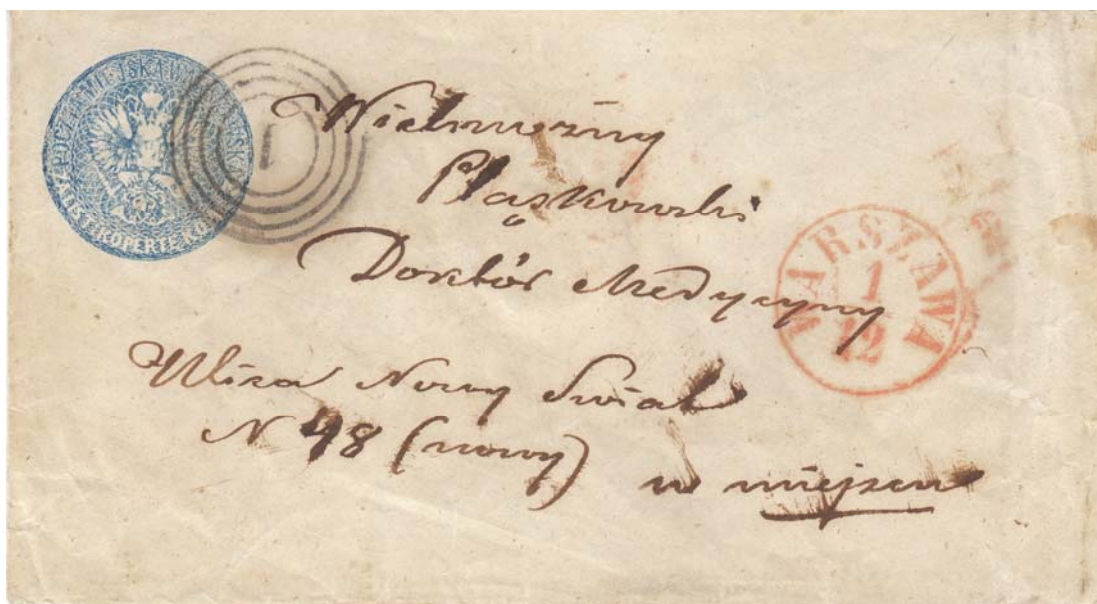 POCZTA MIEJSKA WARSZAWSKA
ZA LIST I KOPERTE
1
Wielmożny
Pląskowski
Doktór Medycyny
Ulica Nowy Swiat
N 48 (nowy) w miejscu
WARSZAWA
1
12